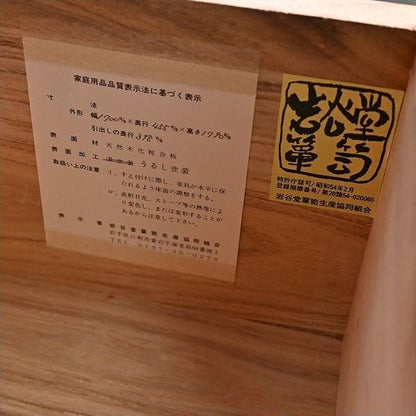 家庭用品品質表示法に基づく表示
寸法
外形 幅1700%×奥行455%×高さ1750%
引出しの奥行375%
表面材 天然木化粧合板
表面加工 うるし塗装
取扱い上の注意 イ、すえ付けに際し、家具が水平に保
たれるよう床面の調整をする。
ロ、直射日光、ストーブ等の熱等によ
り変色し、または変形することが
あるから注意して下さい。
表示者 岩谷堂箪笥生産協同組合
TEL 0197-35-0275
岩谷堂箪笥
特許庁認可/昭和54年2月
登録商標番号/第20類54-020066
岩谷堂箪笥生産協同組合